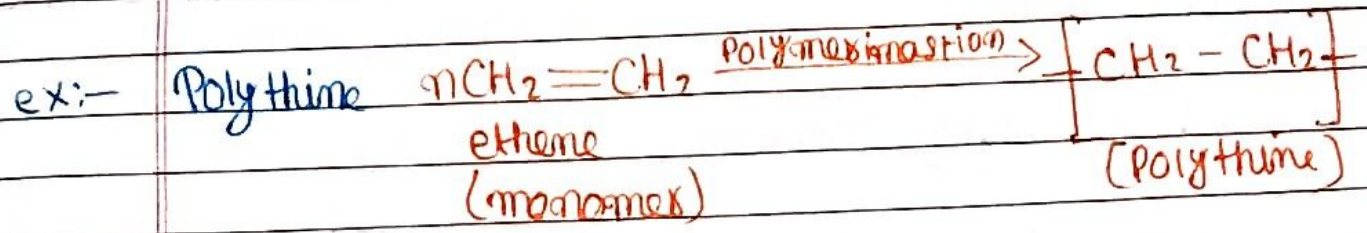 ex:- Polythine nCH₂=CH₂ Polymerimastion → [CH₂-CH₂]
ethene
(monomer)
(Polythine)